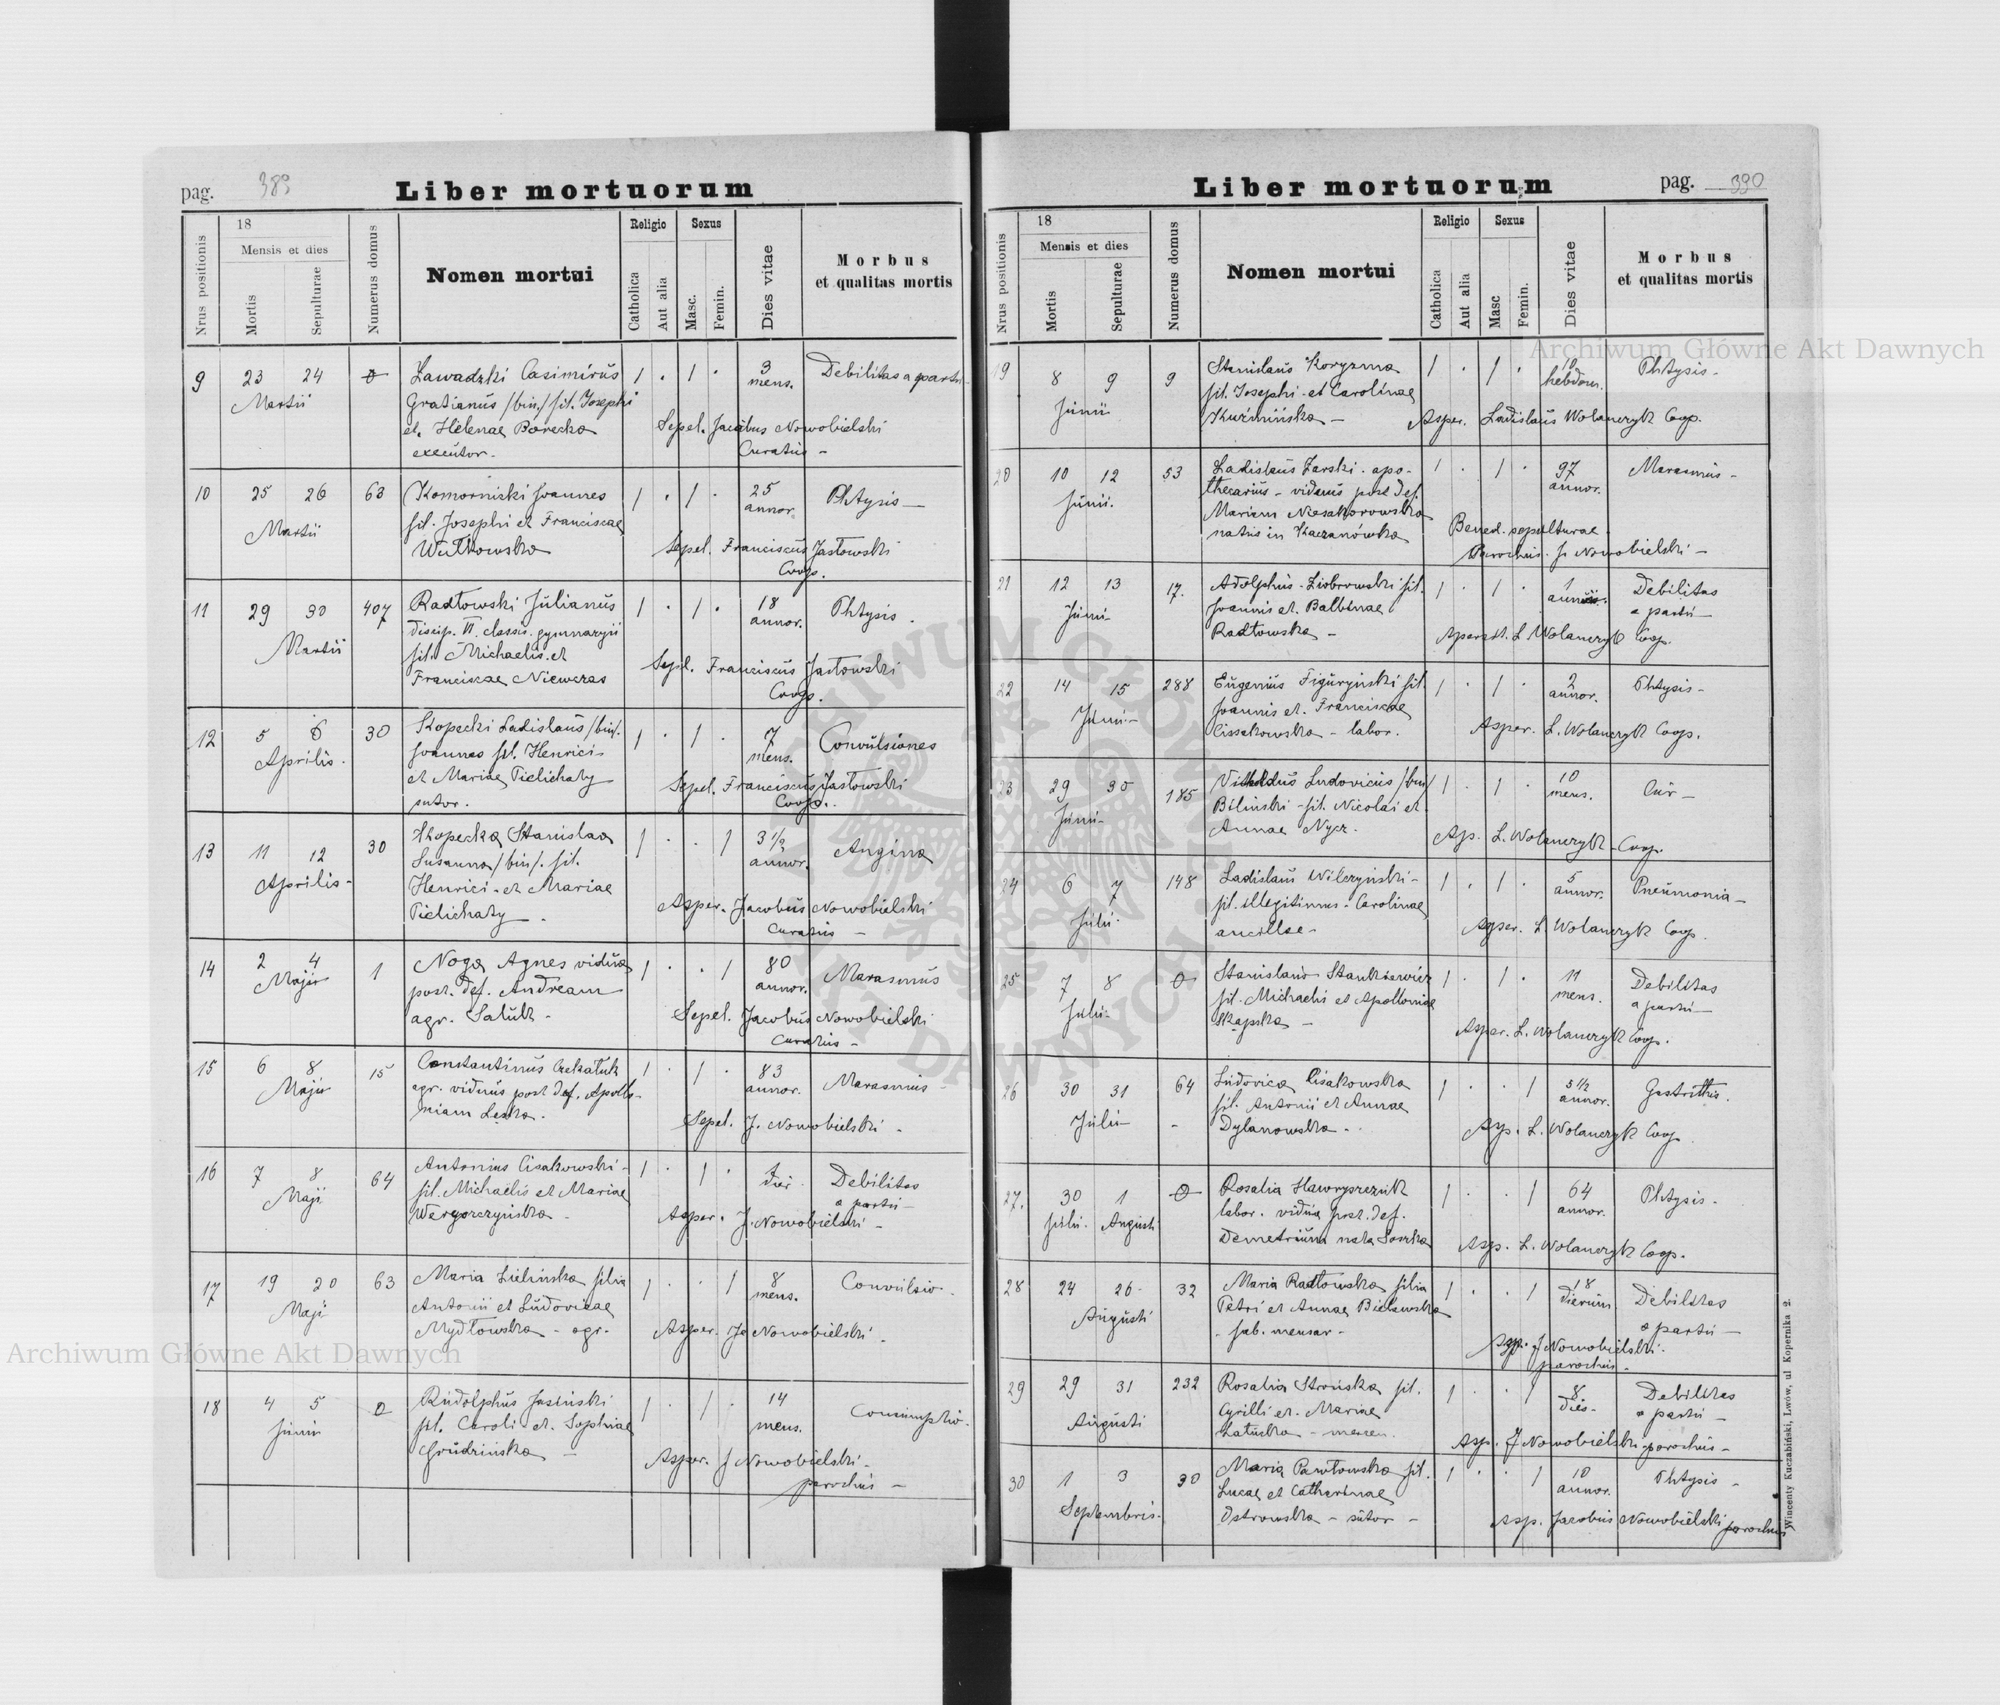 pag. 389
Liber mortuorum
Nrus positionis
18
Mensis et dies
Mortis
Sepulturae
Numerus domus
Nomen mortui
Religio
Catholica
Aut alia
Sexus
Masc.
Femin.
Dies vitae
Morbus
et qualitas mortis
9 23 24 0 Zawadzki Casimirus 1 . 1 . 3 Debilitas a partu
Martii Gratianus /bin./ fil. Josephi mens.
et Helenae Borecka Sepel. Jacobus Nowobielski
executor. Curatus -
10 25 26 63 Komornicki Joannes 1 . 1 . 25 Phtysis -
Martii fil. Josephi et Franciscae annor.
Wutkowska Sepel. Franciscus Jasłowski
Coop.
11 29 30 407 Radłowski Julianus 1 . 1 . 18 Phtysis.
Martii discip. VI. classis gymnazyii annor.
fil. Michaelis et Sepel. Franciscus Jasłowski
Franciscae Niewczas Coop.
12 5 6 30 Kopecki Ladislaus /bin/. 1 . 1 . 7 Convulsiones
Aprilis. Joannes fil. Henrici mens.
et Mariae Pielichaty Sepel. Franciscus Jasłowski
sutor. Coop.
13 11 12 30 Kopecka Stanislaa 1 . . 1 3 1/2 Angina
Aprilis - Susanna /bin/. fil. annor.
Henrici et Mariae Asper. Jacobus Nowobielski
Pielichaty. Curatus -
14 2 4 1 Noga Agnes vidua 1 . . 1 80 Marasmus
Maji post. def. Andream annor.
agr. Saluk - Sepel. Jacobus Nowobielski
Curatus -
15 6 8 15 Constantinus Czekałuk 1 . 1 . 83 Marasmus -
Maji agr. viduus post def. Apollo- annor.
niam Leska. Sepel. J. Nowobielski.
16 7 8 64 Antonius Cisakowski - 1 . 1 . 1 Debilitas
Maji fil. Michaelis et Mariae dies a partu -
Wergorczyńska - Asper. J. Nowobielski -
17 19 20 63 Maria Zielińska filia 1 . . 1 8 Convulsio.
Maji Antonii et Ludovicae mens.
Mydłowska - agr. Asper. J. Nowobielski.
18 4 5 0 Rudolphus Jasiński 1 . 1 . 14 Consumptio.
Junii fil. Caroli et. Sophiae mens.
Grudzińska - Asper. J Nowobielski -
parochus -
Liber mortuorum
pag. 390
Nrus positionis
18
Mensis et dies
Mortis
Sepulturae
Numerus domus
Nomen mortui
Religio
Catholica
Aut alia
Sexus
Masc
Femin.
Dies vitae
Morbus
et qualitas mortis
19 8 9 9 Stanislaus Koryzma 1 . 1 . hebdom. Phtysis -
Junii fil. Josephi et Carolinae
Kuźmińska - Asper. Ladislaus Wolanczyk Coop.
20 10 12 53 Ladislaus Żarski. apo- 1 . 1 . 97 Marasmus -
Junii. thecarius - viduus post def. annor.
Mariam Niesakorowska Bened. sepulturae
natus in Kaczanówka Parochus. J. Nowobielski -
21 12 13 17. Adolphus Ziobrowski fil. 1 . 1 . 1 Debilitas
Junii Joannis et. Balbinae a partu -
Radłowska - L Wolanczyk Coop.
22 14 15 288 Eugenius Figuryński fil. 1 . 1 . 2 Phtysis -
Junii - Joannis et. Franciscae annor.
Cissakowska - labor. Asper. L. Wolanczyk Coop.
23 29 30 185 Vitoldus Ludovicus /bin/ 1 . 1 . 10
Junii - Biliński - fil. Nicolai et mens.
Annae Nycz. Asp. L. Wolanczyk - Coop.
24 6 7 148 Ladislaus Wilczyński - 1 . 1 . 5 Pneumonia -
Julii fil. illegitimus - Carolinae annor.
ancillae - Asper. L Wolanczyk Coop.
25 7 8 0 Stanislaus Stankiewicz 1 . 1 . 11 Debilitas
Julii - fil. Michaelis et Apolloniae mens. a partu -
Skąpska - Asper. L. Wolanczyk Coop.
26 30 31 64 Ludovica Cisakowska 1 . . 1 5 1/2 Gastrittis.
Julii - fil. Antonii et Annae annor.
Dylanowska - . Asp. L. Wolanczyk Coop.
27. 30 1 0 Rosalia Hawryszczuk 1 . . 1 64 Phtysis -
Julii. Augusti labor. vidua post. def. annor.
Demetrium nata Soszka Asp. L. Wolanczyk Coop.
28 24 26 32 Maria Radłowska filia 1 . . 1 18 Debilitas
Augusti Petri et Annae Bielawska dierum a partu -
- fab. mensar - Asp. J Nowobielski.
parochus -
29 29 31 232 Rosalia Strońska fil. 1 . . 1 8 Debilitas
Augusti Cyrilli et. Mariae dies - a partu -
Łatuska - mercen. Asp. J Nowobielski parochus -
30 1 3 30 Maria Pawłowska fil. 1 . . 1 10 Phtysis -
Septembris. Lucae et Catharinae annor.
Ostrowska - sutor - Asp. Jacobus Nowobielski parochus
Wincenty Kuczabiński, Lwów, ul Kopernika 2.
Archiwum Główne Akt Dawnych
Archiwum Główne Akt Dawnych
ARCHIWUM GŁÓWNE AKT DAWNYCH